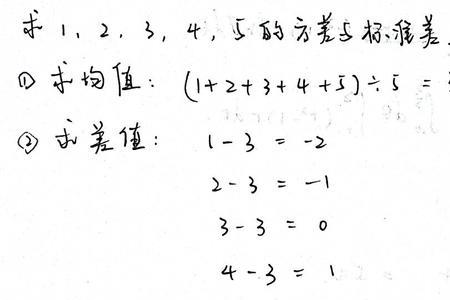 求 1, 2, 3, 4, 5 的方差与标准差.
① 求均值: (1+2+3+4+5)÷5 =
② 求差值: 1-3 = -2
2-3 = -1
3-3 = 0
4-3 = 1